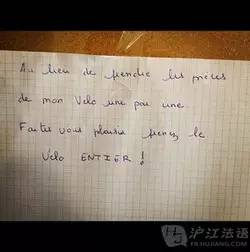 Au lieu de prendre les pièces
de mon Vélo une par une
Faites vous plaisir prenez le
Vélo ENTIER !
沪江法语
FR.HUJIANG.COM